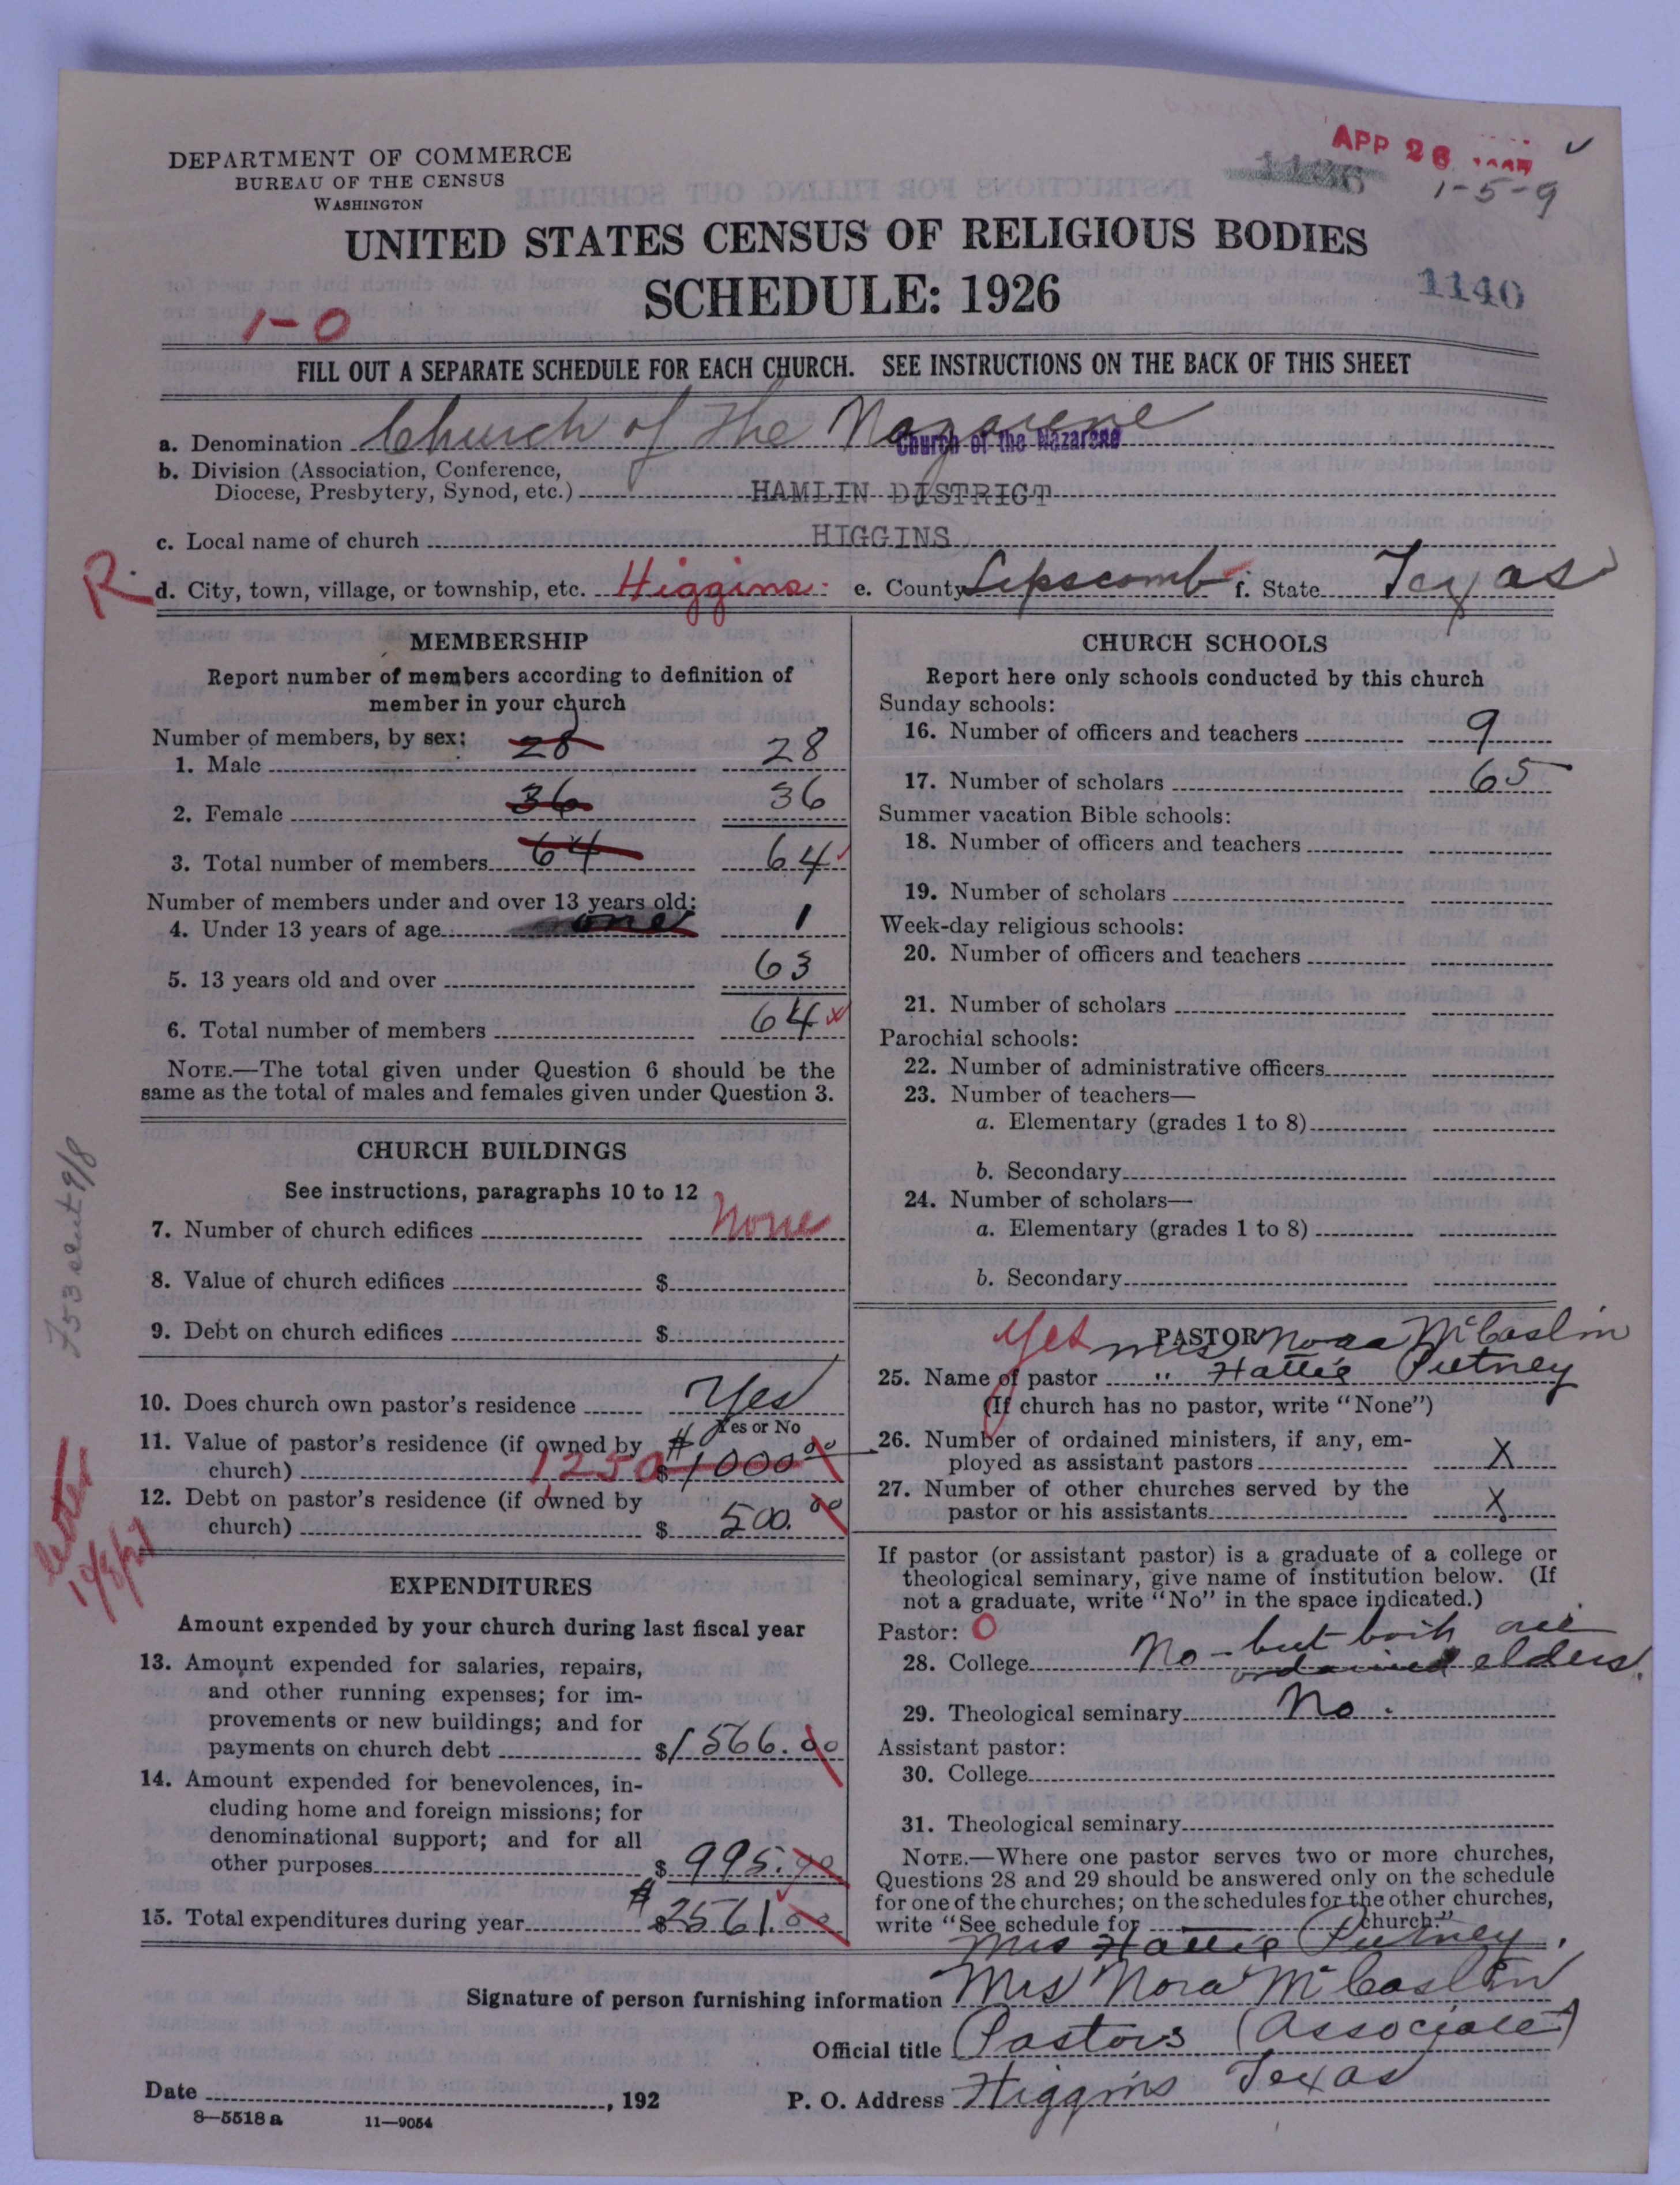 APR 26
1136
1-5-9
DEPARTMENT OF COMMERCE
BUREAU OF THE CENSUS
WASHINGTON
UNITED STATES CENSUS OF RELIGIOUS BODIES
SCHEDULE: 1926
1140
1-0
FILL OUT A SEPARATE SCHEDULE FOR EACH CHURCH. SEE INSTRUCTIONS ON THE BACK OF THIS SHEET
a. Denomination Church of the Nazarene
Church of the Nazarene
b. Division (Association, Conference,
Diocese, Presbytery, Synod, etc.) HAMLIN DISTRICT
c. Local name of church HIGGINS
R. d. City, town, village, or township, etc. Higgins e. County Lipscomb f. State Texas
MEMBERSHIP
Report number of members according to definition of
member in your church
Number of members, by sex:
1. Male 28 28
2. Female 36 36
3. Total number of members 64 64
Number of members under and over 13 years old:
4. Under 13 years of age one 1
5. 13 years old and over 63
6. Total number of members 64
NOTE.—The total given under Question 6 should be the
same as the total of males and females given under Question 3.
CHURCH BUILDINGS
See instructions, paragraphs 10 to 12
7. Number of church edifices None
8. Value of church edifices $
9. Debt on church edifices $
10. Does church own pastor's residence Yes
Yes or No
11. Value of pastor's residence (if owned by
church) 1250 $1000.00
12. Debt on pastor's residence (if owned by
church) $ 500.00
letter
EXPENDITURES
Amount expended by your church during last fiscal year
13. Amount expended for salaries, repairs,
and other running expenses; for im-
provements or new buildings; and for
payments on church debt $1566.00
14. Amount expended for benevolences, in-
cluding home and foreign missions; for
denominational support; and for all
other purposes $ 995.00
15. Total expenditures during year $2561.00
CHURCH SCHOOLS
Report here only schools conducted by this church
Sunday schools:
16. Number of officers and teachers 9
17. Number of scholars 65
Summer vacation Bible schools:
18. Number of officers and teachers
19. Number of scholars
Week-day religious schools:
20. Number of officers and teachers
21. Number of scholars
Parochial schools:
22. Number of administrative officers
23. Number of teachers—
a. Elementary (grades 1 to 8)
b. Secondary
24. Number of scholars—
a. Elementary (grades 1 to 8)
b. Secondary
Yes PASTOR
Mrs Nora McCaslin
25. Name of pastor " Hattie Putney
(If church has no pastor, write "None")
26. Number of ordained ministers, if any, em-
ployed as assistant pastors X
27. Number of other churches served by the
pastor or his assistants X
If pastor (or assistant pastor) is a graduate of a college or
theological seminary, give name of institution below. (If
not a graduate, write "No" in the space indicated.)
Pastor: O
28. College No - but both are
ordained elders.
29. Theological seminary No.
Assistant pastor:
30. College
31. Theological seminary
NOTE.—Where one pastor serves two or more churches,
Questions 28 and 29 should be answered only on the schedule
for one of the churches; on the schedules for the other churches,
write "See schedule for church."
Mrs Hattie Putney.
Signature of person furnishing information Mrs Nora McCaslin
Official title Pastors (Associate)
Date , 192 P. O. Address Higgins Texas
8—5518 a 11—9054